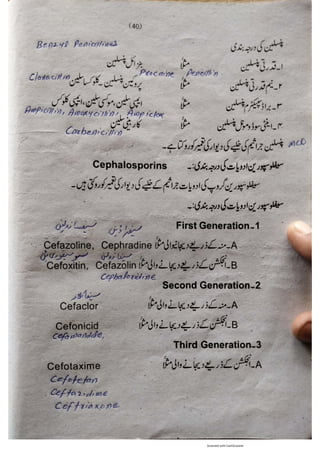 (40)
Benzyl Penicillins
پنسلین کی درجہ بندی
۱۔ قدرتی پنسلین مثلاً بنزائل پنسلین
Cloxacillin Procaine Penicillin
۲۔ نیم قدرتی پنسلین مثلاً پروکین پنسلین۔ کلوکساسلین
۳۔ براڈ سپیکٹرم مثلاً ایمپی سلین، اموکسی سلین، ایمپی کلوکس
Ampicillin, Amoxycillin, Ampiclox
۴۔ اینٹی سوڈوموئل پنسلین مثلاً کاربینی سلین
Carbenicillin
پنسلین جراثیم کے خلیے کی دیوار کی تعمیر کو روکتا ہے۔ MCQ
Cephalosporins سیفلوسپورین ادویات کی درجہ بندی:۔
سیفلوسپورین گروپ کی ادویات جراثیم کے خلیے کی دیوار کی تعمیر کو روکتی ہیں۔
سیفلوسپورین ادویات کی درجہ بندی:۔
1۔First Generation
A۔ منہ کے ذریعے دیجانیوالی مثلاً Cefazoline, Cephradine
B۔ انجکشن کے ذریعے دیجانے والی مثلاً Cefoxitin, Cefazolin
Cephaloridine
2۔Second Generation
A۔ منہ کے ذریعے دیجانے والی مثلاً Cefaclor
B۔ انجکشن کے ذریعے دیجانے والی مثلاً Cefonicid
Cefamandole,
3۔Third Generation
A۔ انجکشن کے ذریعے دیجانے والی مثلاً Cefotaxime
Cefotetan
Ceftazidime
Ceftriaxone
Scanned with CamScanner